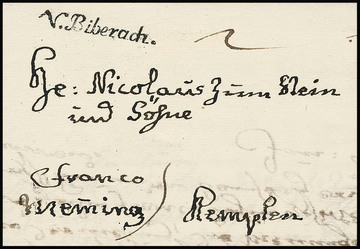 V. Biberach.
He: Nicolaus zum Stein
und Söhne
franco
Meming
Kempten